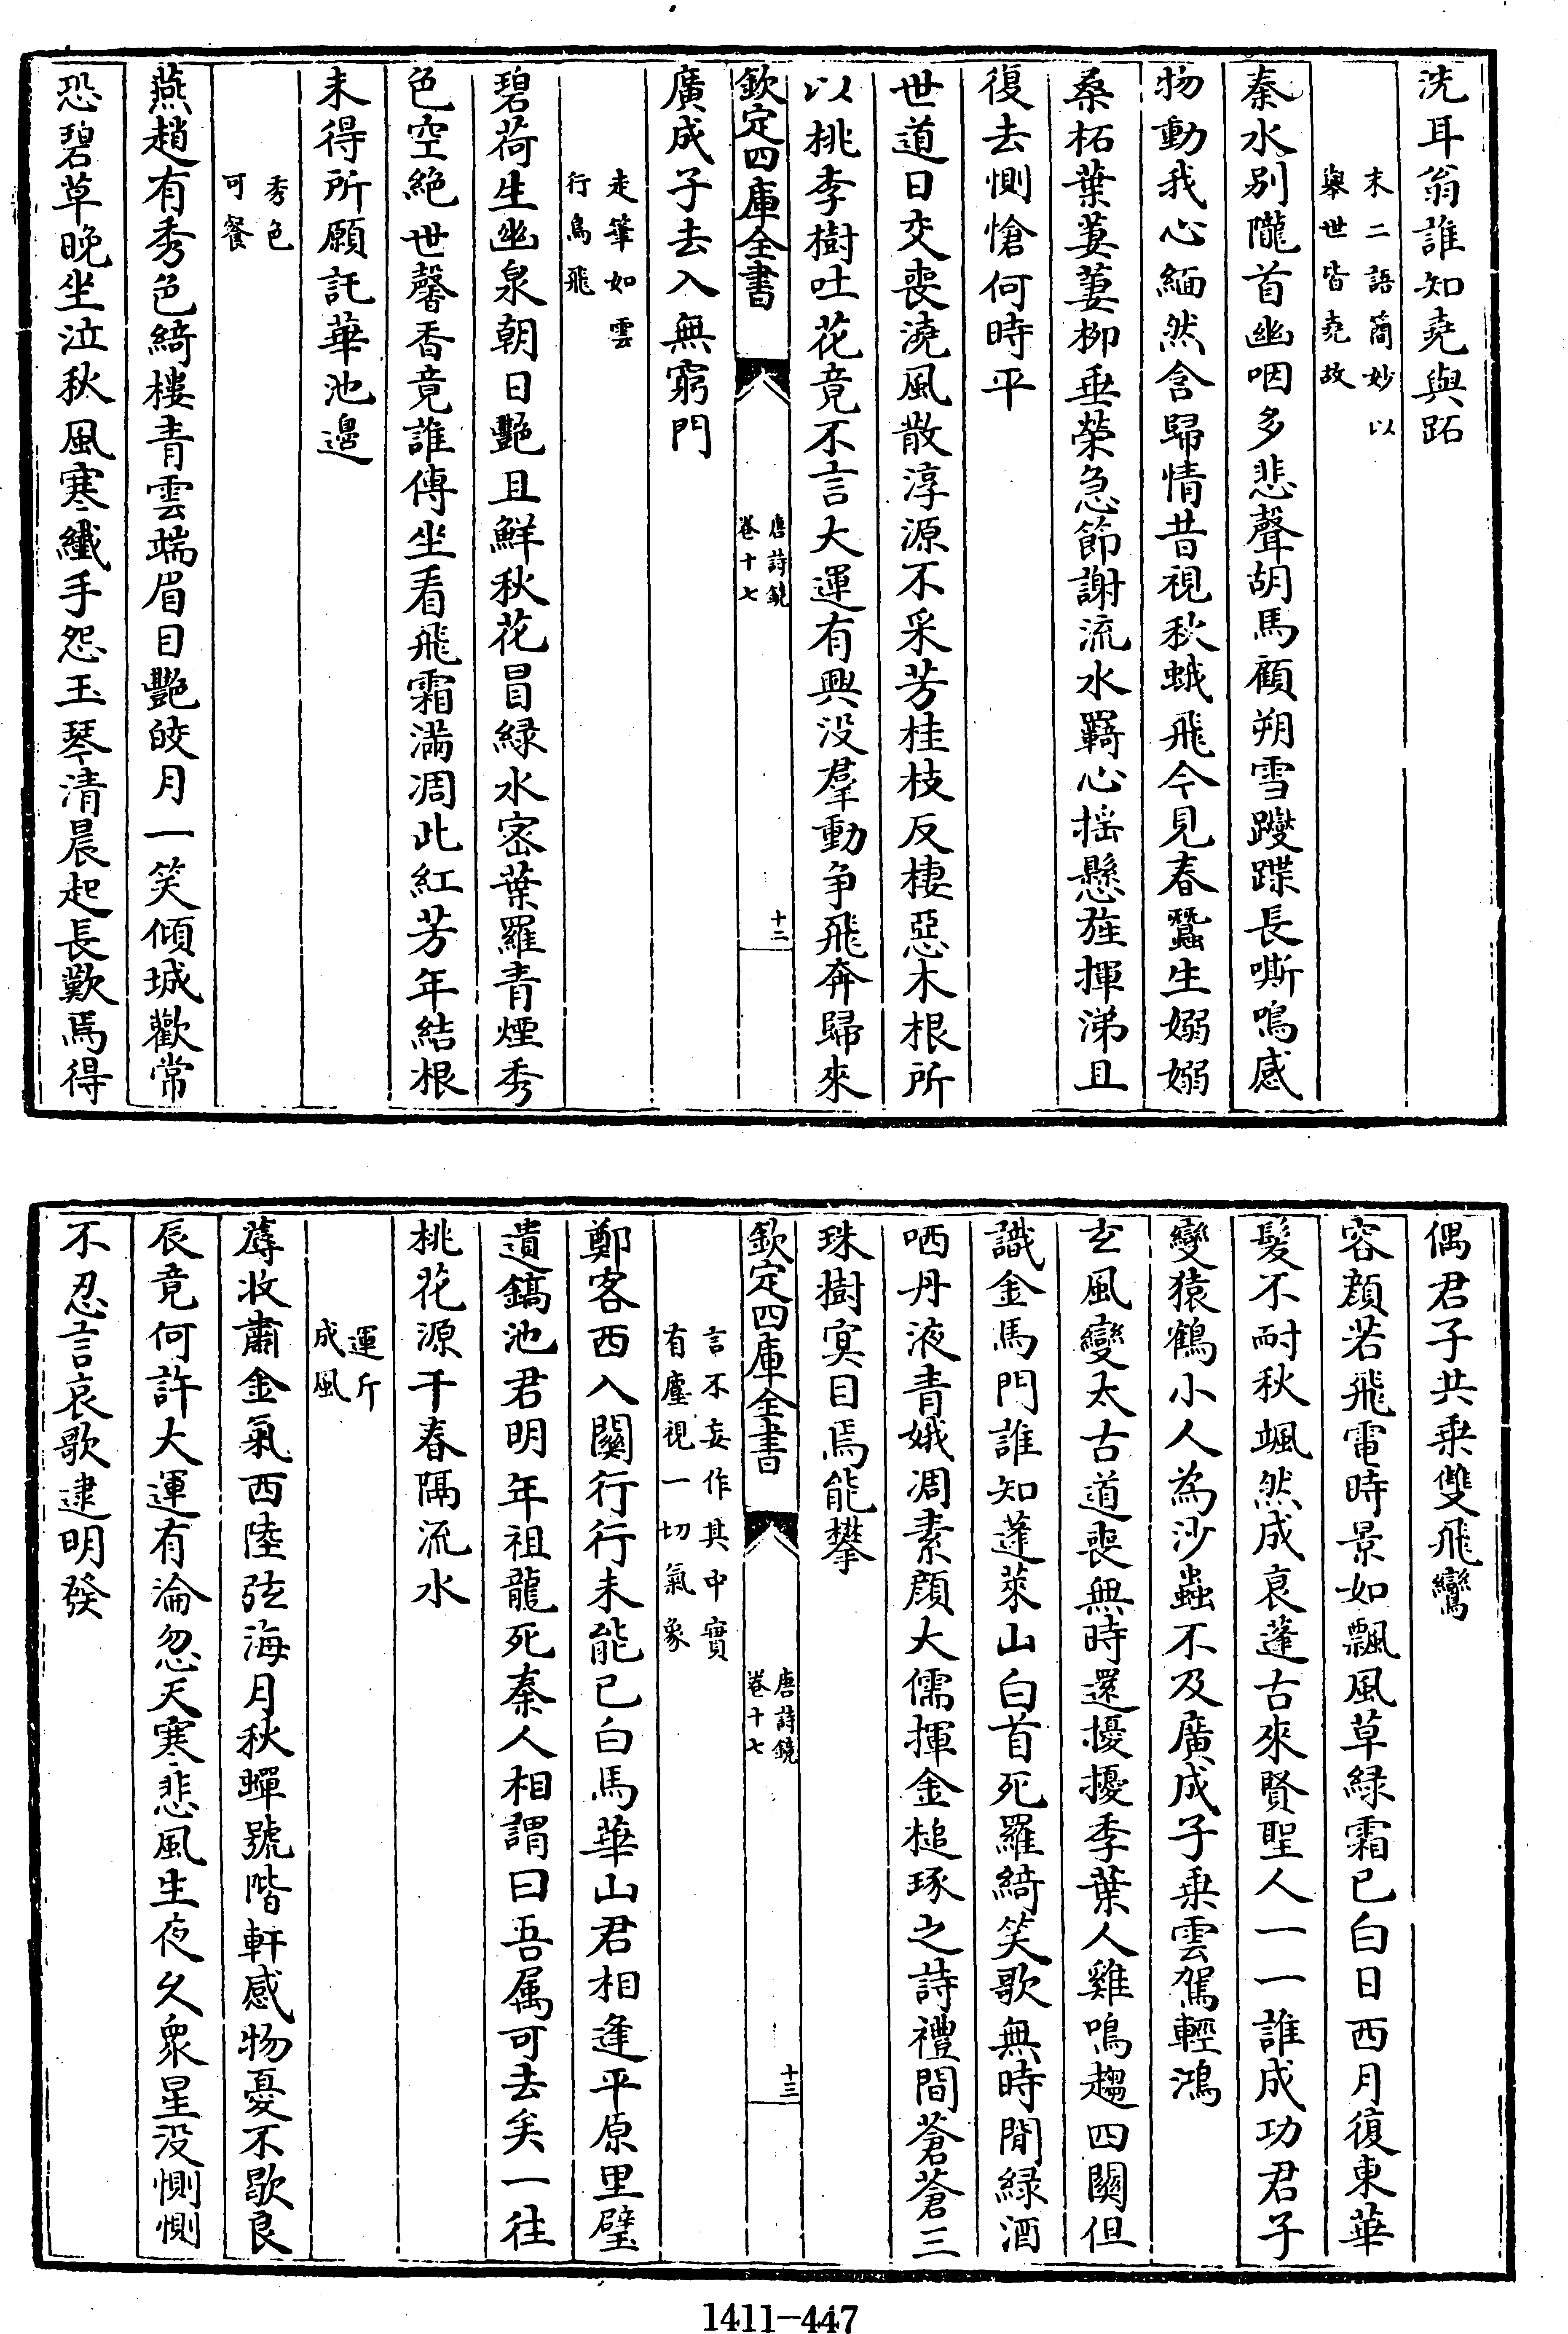 洗耳翁誰知堯與跖
末二語簡妙以
舉世皆堯故
秦水别隴首幽咽多悲聲胡馬顧朔雪躞蹀長嘶鳴感
物動我心緬然含歸情昔視秋蛾飛今見春蠶生嫋嫋
桑柘葉萋萋栁垂榮急節謝流水羇心揺懸旌揮涕且
復去惻愴何時平
世道日交喪澆風散淳源不采芳桂枝反棲惡木根所
以桃李樹吐花竟不言大運有興没羣動争飛奔歸來
欽定四庫全書
唐詩鏡
卷十七
十二
廣成子去入無窮門
走筆如雲
行鳥飛
碧荷生幽泉朝日艷且鮮秋花冒緑水宻葉羅青煙秀
色空絶世馨香竟誰傳坐看飛霜滿凋此紅芳年結根
未得所願託華池邉
秀色
可餐
燕趙有秀色綺樓青雲端眉目艷皎月一笑傾城歡常
恐碧草晚坐泣秋風寒纖手怨玉琴清晨起長歎焉得
偶君子共乗雙飛鸞
容顔若飛電時景如飄風草緑霜已白日西月復東華
髮不耐秋颯然成衰蓬古來賢聖人一一誰成功君子
變猿鶴小人為沙蟲不及廣成子乗雲駕輕鴻
玄風變太古道喪無時還擾擾季葉人雞鳴趨四闗但
識金馬門誰知蓬萊山白首死羅綺笑歌無時閒緑酒
哂丹液青娥凋素顔大儒揮金槌琢之詩禮間蒼蒼三
珠樹冥目焉能攀
欽定四庫全書
唐詩鏡
卷十七
十三
言不妄作其中實
有塵視一切氣象
鄭客西入闗行行未能已白馬華山君相逢平原里璧
遺鎬池君明年祖龍死秦人相謂曰吾属可去矣一往
桃花源千春隔流水
運斤
成風
蓐收肅金氣西陸弦海月秋蟬號階軒感物憂不歇良
辰竟何許大運有淪忽天寒悲風生夜久衆星没惻惻
不忍言哀歌逮明發
1411-447